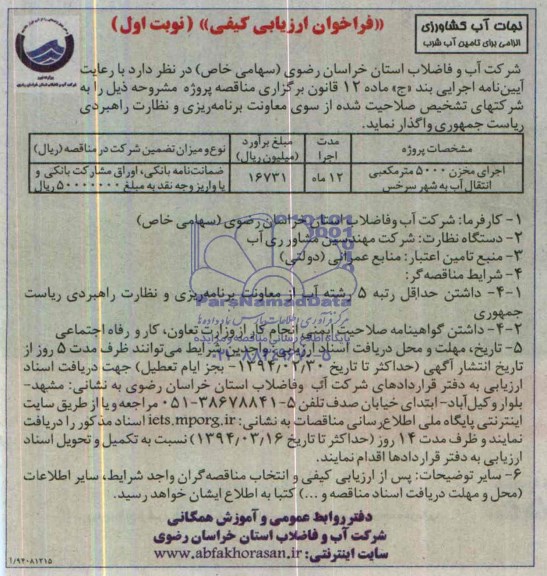 نجات آب کشاورزی
الزامی برای تامین آب شرب
«فراخوان ارزیابی کیفی» (نوبت اول)
شرکت آب و فاضلاب استان خراسان رضوی (سهامی خاص) در نظر دارد با رعایت
آیین‌نامه اجرایی بند «ج» ماده ۱۲ قانون برگزاری مناقصه پروژه مشروحه ذیل را به
شرکتهای تشخیص صلاحیت شده از سوی معاونت برنامه‌ریزی و نظارت راهبردی
ریاست جمهوری واگذار نماید.
مشخصات پروژه | مدت اجرا | مبلغ برآورد (میلیون ریال) | نوع و میزان تضمین شرکت در مناقصه (ریال)
اجرای مخزن ۵۰۰۰ مترمکعبی و انتقال آب به شهر سرخس | ۱۲ ماه | ۱۶۷۳۱ | ضمانت‌نامه بانکی، اوراق مشارکت بانکی و یا واریز وجه نقد به مبلغ ۵۰۰۰۰۰۰۰۰ ریال
۱- کارفرما: شرکت آب وفاضلاب استان خراسان رضوی (سهامی خاص)
۲- دستگاه نظارت: شرکت مهندسین مشاور ری آب
۳- منبع تامین اعتبار: منابع عمرانی (دولتی)
۴- شرایط مناقصه‌گر:
۴-۱- داشتن حداقل رتبه ۵ رشته آب از معاونت برنامه‌ریزی و نظارت راهبردی ریاست
جمهوری
۴-۲- داشتن گواهینامه صلاحیت ایمنی انجام کار از وزارت تعاون، کار و رفاه اجتماعی
۵- تاریخ، مهلت و محل دریافت اسناد ارزیابی: واجدین شرایط می‌توانند ظرف مدت ۵ روز از
تاریخ انتشار آگهی (حداکثر تا تاریخ ۱۳۹۴/۰۲/۳۰- بجز ایام تعطیل) جهت دریافت اسناد
ارزیابی به دفتر قراردادهای شرکت آب وفاضلاب استان خراسان رضوی به نشانی: مشهد-
بلوار وکیل‌آباد- ابتدای خیابان صدف تلفن ۵-۳۸۶۷۸۸۴۱-۰۵۱ مراجعه و یا از طریق سایت
اینترنتی پایگاه ملی اطلاع‌رسانی مناقصات به نشانی: iets.mporg.ir اسناد مذکور را دریافت
نمایند و ظرف مدت ۱۴ روز (حداکثر تا تاریخ ۱۳۹۴/۰۳/۱۶) نسبت به تکمیل و تحویل اسناد
ارزیابی به دفتر قراردادها اقدام نمایند.
۶- سایر توضیحات: پس از ارزیابی کیفی و انتخاب مناقصه‌گران واجد شرایط، سایر اطلاعات
(محل و مهلت دریافت اسناد مناقصه و ...) کتبا به اطلاع ایشان خواهد رسید.
دفتر روابط عمومی و آموزش همگانی
شرکت آب و فاضلاب استان خراسان رضوی
سایت اینترنتی: www.abfakhorasan.ir
ParsNamadData